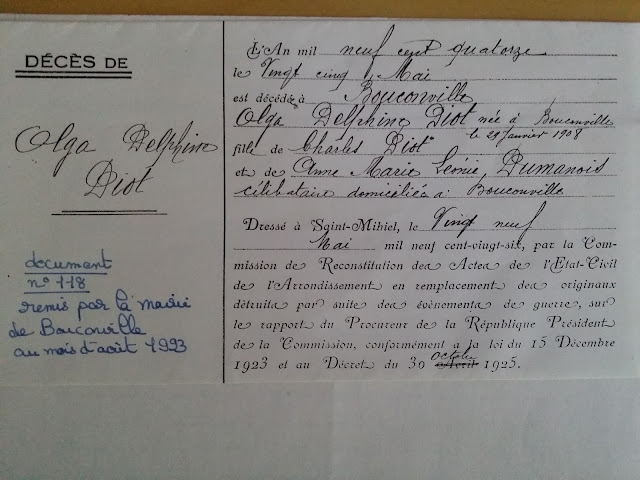 DÉCÈS DE
Olga Delphine
Diot
document
n° 118
remis par la mairie
de Bouconville
au mois d'août 1993
L'An mil neuf cent quatorze
le Vingt cinq Mai
est décédée à Bouconville
Olga Delphine Diot née à Bouconville
le 29 Janvier 1908
fille de Charles Diot
et de Anne Marie Léonie, Dumanois
célibataire domiciliés à Bouconville
Dressé à Saint-Mihiel, le Vingt neuf
Mai mil neuf cent-vingt-six, par la Com-
mission de Reconstitution des Actes de l'Etat-Civil
de l'Arrondissement en remplacement des originaux
détruits par suite des évènements de guerre, sur
le rapport du Procureur de la République Président
de la Commission, conformément a la loi du 15 Décembre
Octobre
1923 et au Décret du 30 Avril 1925.